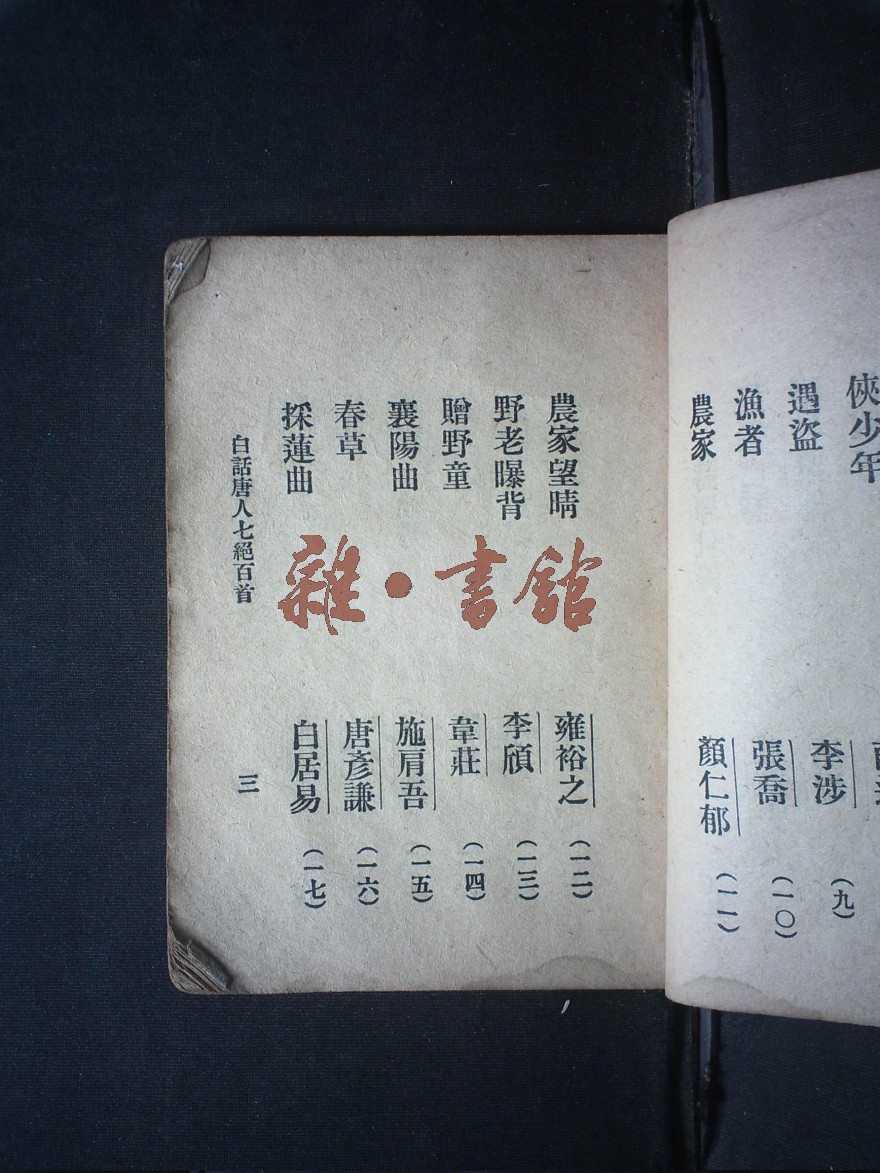 俠少年
遇盜 李涉 (九)
漁者 張喬 (一〇)
農家 顏仁郁 (一一)
農家望晴 雍裕之 (一二)
野老曝背 李頎 (一三)
贈野童 韋莊 (一四)
襄陽曲 施肩吾 (一五)
春草 唐彥謙 (一六)
採蓮曲 白居易 (一七)
白話唐人七絕百首 三
雜·書館